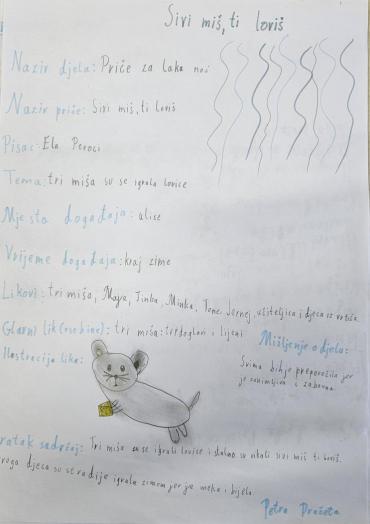 Sivi miš, ti loviš
Naziv djela: Priče za laku noć
Naziv priče: Sivi miš, ti loviš
Pisac: Ela Peroci
Tema: tri miša su se igrala lovice
Mjesto događaja: ulice
Vrijeme događaja: kraj zime
Likovi: tri miša, Maja, Tinka, Minka, Tone, Jernej, učiteljica i djeca iz vrtića
Glavni lik (osobine): tri miša: tvrdoglavi i lijeni
Mišljenje o djelu:
Svima bih je preporučila jer
je zanimljiva i zabavna
Ilustracija lika:
ratak sadržaj: Tri miša su se igrali lovice i stalno su vikali sivi miš ti loviš.
djeca su se radije igrala zimom jer je meka i bijela
Petra